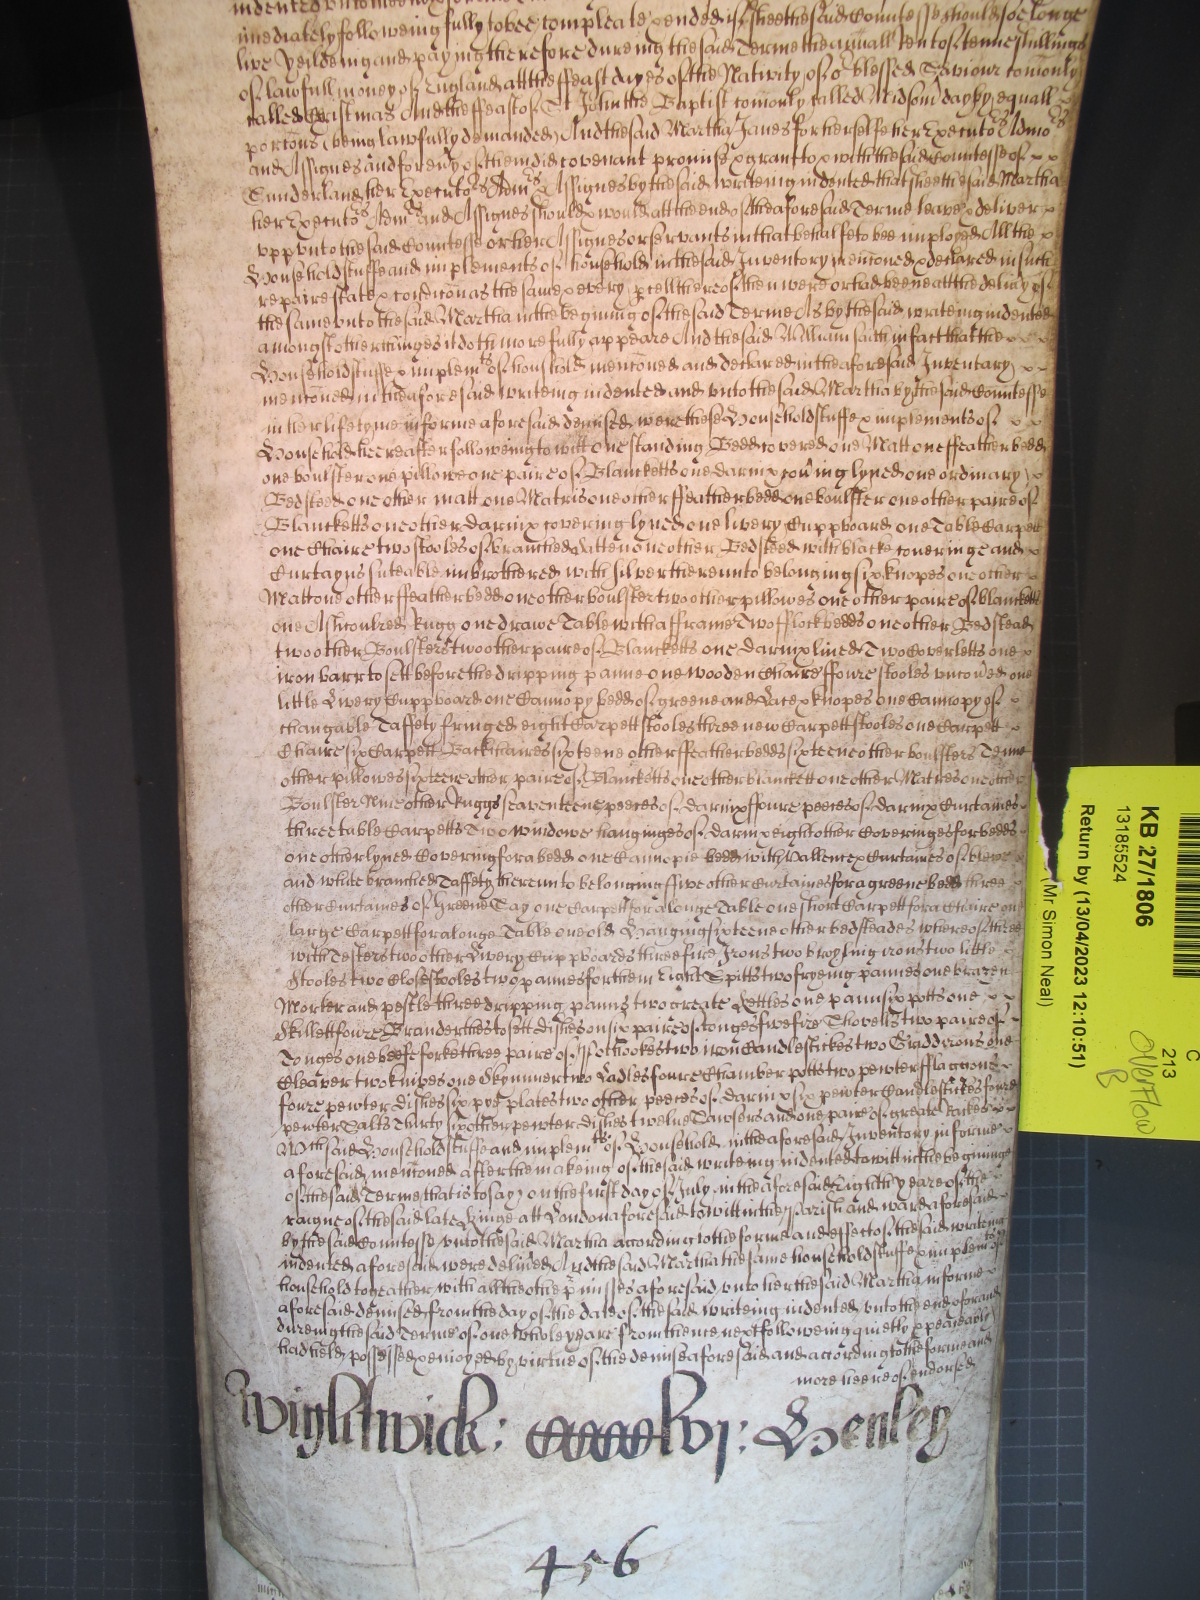 imediately followeing fully to bee compleate & ended if shee the said Countesse should soe longe
live Yeildeing and payinge therefore dureing the said Terme the annuall rent of tenne shillings
of lawfull money of England att the ffeast dayes of the Nativity of o blessed Saviour comonly
called Christmas And the ffeast of St John the Baptist comonly called Midsom day by equall
porcons (being lawfully demanded) And the said Martha Janes for her selfe her Executors Admors
and Assignes and for every of them did covenant promise & grant to & with the said Countesse of
Sunderland her Executors Admrs & Assignes by the said writeing indented that shee the said Martha
her Executors Admrs and Assignes should & would att the end of the aforesaid Terme leave & deliver
upp unto the said Countesse or her Assignes or servants in that behalfe to bee imployed All the
Household stuffe and implements of household in the said Inventory menconed & declared in such
repaire state & condicon as the same & every pcell thereof then were or had beene att the delivy of
the same unto the said Martha in the begining of the said Terme As by the said writeing indented
amongst other thinges it doth more fully appeare And the said William saith in fact that the
Household stuffe & implemts of household menconed and declared in the aforesaid Inventary
menconed in the aforesaid writeing indented and unto the said Martha by the said Countesse
in her lifetyme in forme aforesaid demised were these Household stuffe & implements of
Household hereafter followeing to witt one standing Bedd covered one Matt one ffeather bedd
one boulster one pillowe one paire of Blancketts one darnix covring lyned one ordinary
Bedsteed one other matt one Matris one other ffeatherbedd one boulster one other paire of
Blancketts one other darnix covering lyned one livery Cuppboard one Table Carpett
one Chaire two stooles of branched Satten one other Bedsteed with blacke covering and
Curtayns suteable imbrothered with silver thereunto belonging six knopes one other
Matt one other ffeather bedd one other boulster two other pillowes one other paire of blancketts
one Ashcoulred Rugg one drawe Table with a fframe Two fflockbedds one other Bedstead
two other Boulsters two other paire of Blancketts one darnix lined Two Coverletts one
iron barr to sett before the dripping panne one wooden Chaire ffoure stooles uncovred one
little Livery Cuppboard one Cannopy bedd of greene and Lace & knopes one Cannopy of
changable Taffety fringed eight Carpett stooles three new Carpett stooles one Carpett
Chaire six Carpett Backchaires sixteene other ffeatherbedds sixteene other boulsters Tenne
other pillowes sixteene other paire of Blancketts one other blanckett one other Matres one other
Boulster Nine other Ruggs seaventeene peeces of darnix ffoure peeces of darnix Curtaines
three table Carpetts Two windowe hanginges of darnix eight other Coveringes for bedds
one other lyned Covering for a bedd one Cannopie bedd with Vallence & Curtaines of blewe
and white branched Taffety thereunto belonging ffive other Curtaines for a greene bedd three
other Curtaines of Greene Say one Carpett for a longe Table one short Carpett for a Chaire one
large Carpett for a longe Table one old Hanging sixteene other bedsteades whereof three
with Testers two other Livery Cuppboards three fire Irons two broyling irons two little
Stooles two Closestooles two pannes for them Eight Spitts two fryeing pannes one brazen
Morter and pestle three dripping panns two greate Kettles one pann six potts one
Skillett foure Branderths to sett dishes on six paire of tonges five fire Shovells two paire of
Tonges one beefe forke three paire of Pothookes two iron Candlestickes two Griddirons one
Cleaver two knives one Skymmer two Ladles foure Chamber potts two pewter fflaggons
foure pewter dishes six pye plates two other peeces of darnix six pewter Candlestickes foure
pewter Salts Thirty six other pewter dishes twelve Sawsers and one paire of greate Rackes
Wch said Household stuffe and implemts of Household in the aforesaid Inventory in forme
aforesaid menconed after the makeing of the said writeing indented to witt in the begininge
of the said Terme that is to say on the first day of July in the aforesaid Eighth yeare of the
raigne of the said late Kinge att London aforesaid to witt in the Parish and ward aforesaid
by the said Countesse unto the said Martha according to the forme and effect of the said writeing
indented aforesaid were delivred And the said Martha the same household stuffe & implemts of
household togeather with all the other pmisses aforesaid unto her the said Martha in forme
aforesaid demised from the day of the date of the said writeing indented unto the end of and
dureing the said Terme of one whole yeare from thence next followeing quietly & peaceably
had held possessed & enjoyed by virtue of the demise aforesaid and according to the forme and
more heereof endorsed
Wightwick: CCCClvj: Henley
456
KB 27/1806
13185524
Return by (13/04/2023 12:10:51)
(Mr Simon Neal)
C
213
Overflow
B